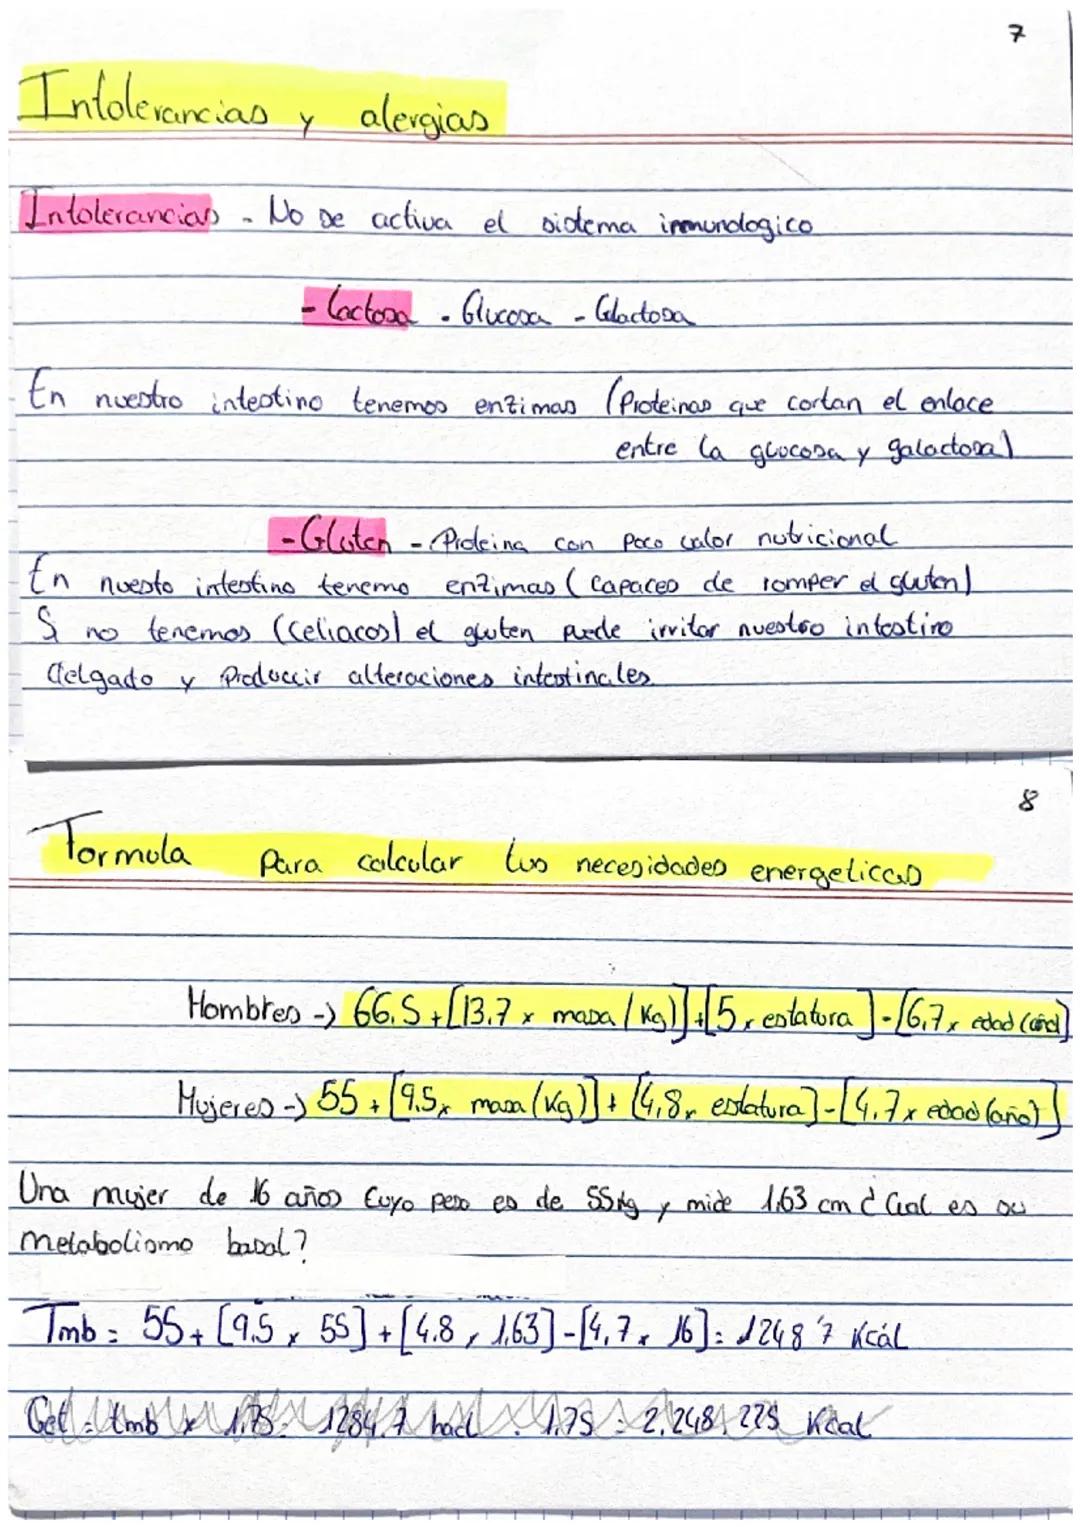 7
Intolerancias y alergias
Intolerancias - No se activa el sistema inmunologico
- lactosa - Glucosa - Galactosa
En nuestro intestino tenemos enzimas (Proteinas que cortan el enlace
entre la glucosa y galactosa)
- Gluten - Proteina con poco valor nutricional
En nuesto intestino tenemo enzimas (capaces de romper el gluten)
Si no tenemos (Celiacos) el gluten puede irritar nuestro intestino
delgado y Producir alteraciones intestinales
8
Formula para calcular tus necesidades energeticas
Hombres -> 66.5 + [13.7 x masa (Kg)] + [5 x estatura] - [6,7 x edad (año)]
Mujeres -> 55 + [9.5 x masa (Kg)] + [4,8 x estatura] - [4.7 x edad (año)]
Una mujer de 16 años cuyo peso es de 55 kg y mide 1.63 cm ¿ Cual es su
metabolismo basal?
Tmb = 55 + [9.5 x 55] + [4.8 x 1,63] - [4,7 x 16] = 1248'7 Kcal
Get = tmb x 1.75 = 1284.7 1.75 = 2.248,225 Kcal